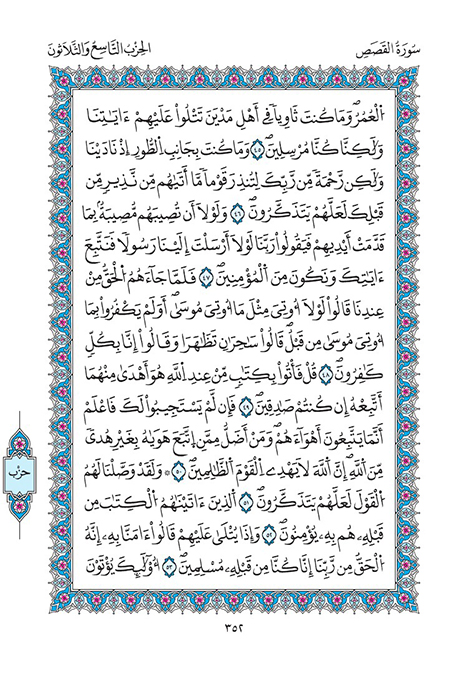 سُورَةُ القَصَصِ
الحِزْبُ التَّاسِعُ وَالثَّلَاثُونَ
اَ۬لْعُمُرُۖ وَمَا كُنتَ ثَاوِياٗ فِےٓ أَهْلِ مَدْيَنَ تَتْلُواْ عَلَيْهِمُۥٓ ءَايَٰتِنَا
وَلَٰكِنَّا كُنَّا مُرْسِلِينَۖ ٤٥ وَمَا كُنتَ بِجَانِبِ اِ۬لطُّورِ إِذْ نَادَيْنَا
وَلَٰكِن رَّحْمَةٗ مِّن رَّبِّكَ لِتُنذِرَ قَوْماٗ مَّآ أَتَىٰهُم مِّن نَّذِيرٖ مِّن
قَبْلِكَ لَعَلَّهُمْ يَتَذَكَّرُونَۖ ٤٦ وَلَوْلَآ أَن تُصِيبَهُم مُّصِيبَةُۢ بِمَا
قَدَّمَتَ اَيْدِيهِمْ فَيَقُولُواْ رَبَّنَا لَوْلَآ أَرْسَلْتَ إِلَيْنَا رَسُولاٗ فَنَتَّبِعَ
ءَايَٰتِكَ وَنَكُونَ مِنَ اَ۬لْمُؤْمِنِينَۖ ٤٧ فَلَمَّا جَآءَهُمُ اُ۬لْحَقُّ مِنْ
عِندِنَا قَالُواْ لَوْلَآ أُوتِيَ مِثْلَ مَآ أُوتِيَ مُوسَىٰٓۖ أَوَلَمْ يَكْفُرُواْ بِمَآ
أُوتِيَ مُوسَىٰ مِن قَبْلُۖ قَالُواْ سَٰحِرَٰنِ تَظَٰهَرَاۖ وَقَالُوٓاْ إِنَّا بِكُلّٖ
كَٰفِرُونَۖ ٤٨ قُلْ فَاتُواْ بِكِتَٰبٖ مِّنْ عِندِ اِ۬للَّهِ هُوَ أَهْدَىٰ مِنْهُمَآ
أَتَّبِعْهُ إِن كُنتُمْ صَٰدِقِينَۖ ٤٩ فَإِن لَّمْ يَسْتَجِيبُواْ لَكَ فَاعْلَمَ
اَنَّمَا يَتَّبِعُونَ أَهْوَآءَهُمْۖ وَمَنَ اَضَلُّ مِمَّنِ اِ۪تَّبَعَ هَوَىٰهُ بِغَيْرِ هُدٗى
مِّنَ اَ۬للَّهِۖ إِنَّ اَ۬للَّهَ لَا يَهْدِے اِ۬لْقَوْمَ اَ۬لظَّٰلِمِينَۖ ٥٠ وَلَقَدْ وَصَّلْنَا لَهُمُ
اُ۬لْقَوْلَ لَعَلَّهُمْ يَتَذَكَّرُونَۖ ٥١ اَ۬لذِينَ ءَاتَيْنَٰهُمُ اُ۬لْكِتَٰبَ مِن
قَبْلِهِۦ هُم بِهِۦ يُؤْمِنُونَۖ ٥٢ وَإِذَا يُتْلَىٰ عَلَيْهِمْ قَالُوٓاْ ءَامَنَّا بِهِۦٓ إِنَّهُ
اُ۬لْحَقُّ مِن رَّبِّنَآ إِنَّا كُنَّا مِن قَبْلِهِۦ مُسْلِمِينَۖ ٥٣ أُوْلَٰٓئِكَ يُؤْتَوْنَ
حزب
٣٥٢